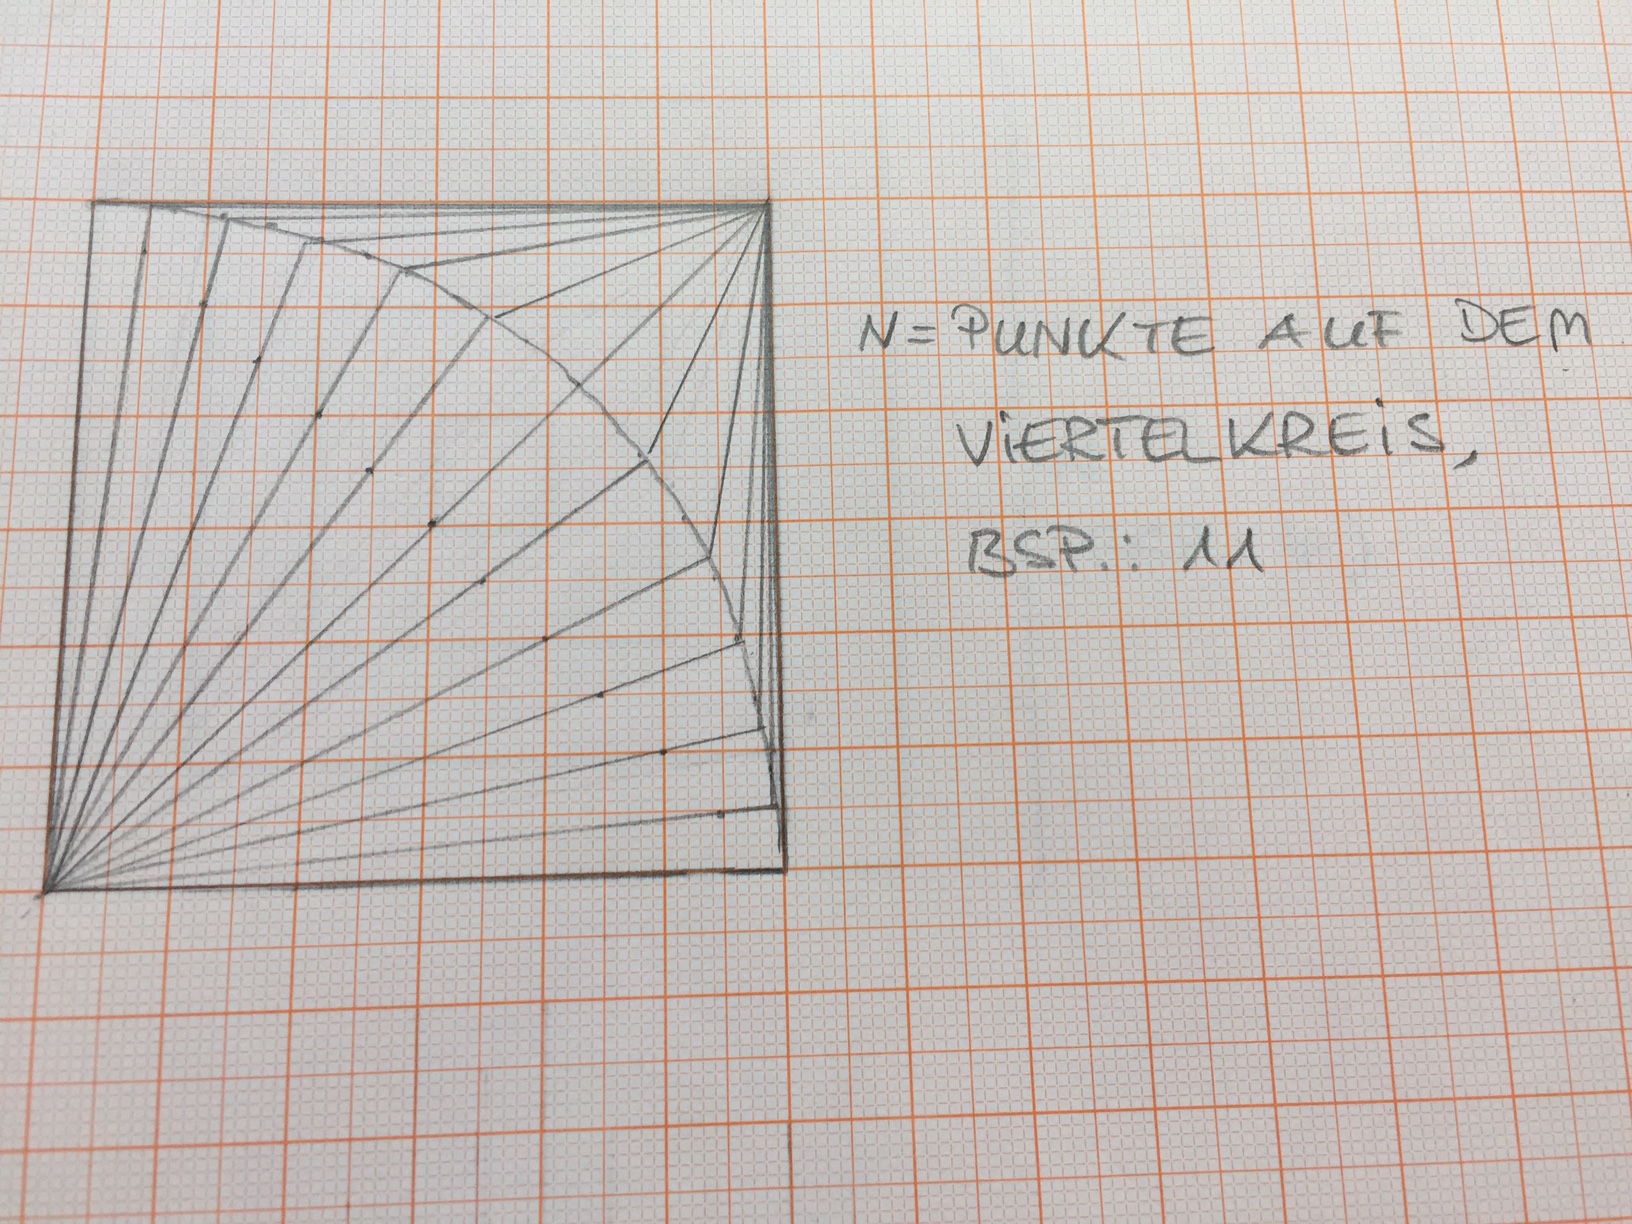 N=PUNKTE AUF DEM
ViERTELKREiS,
BSP.: 11